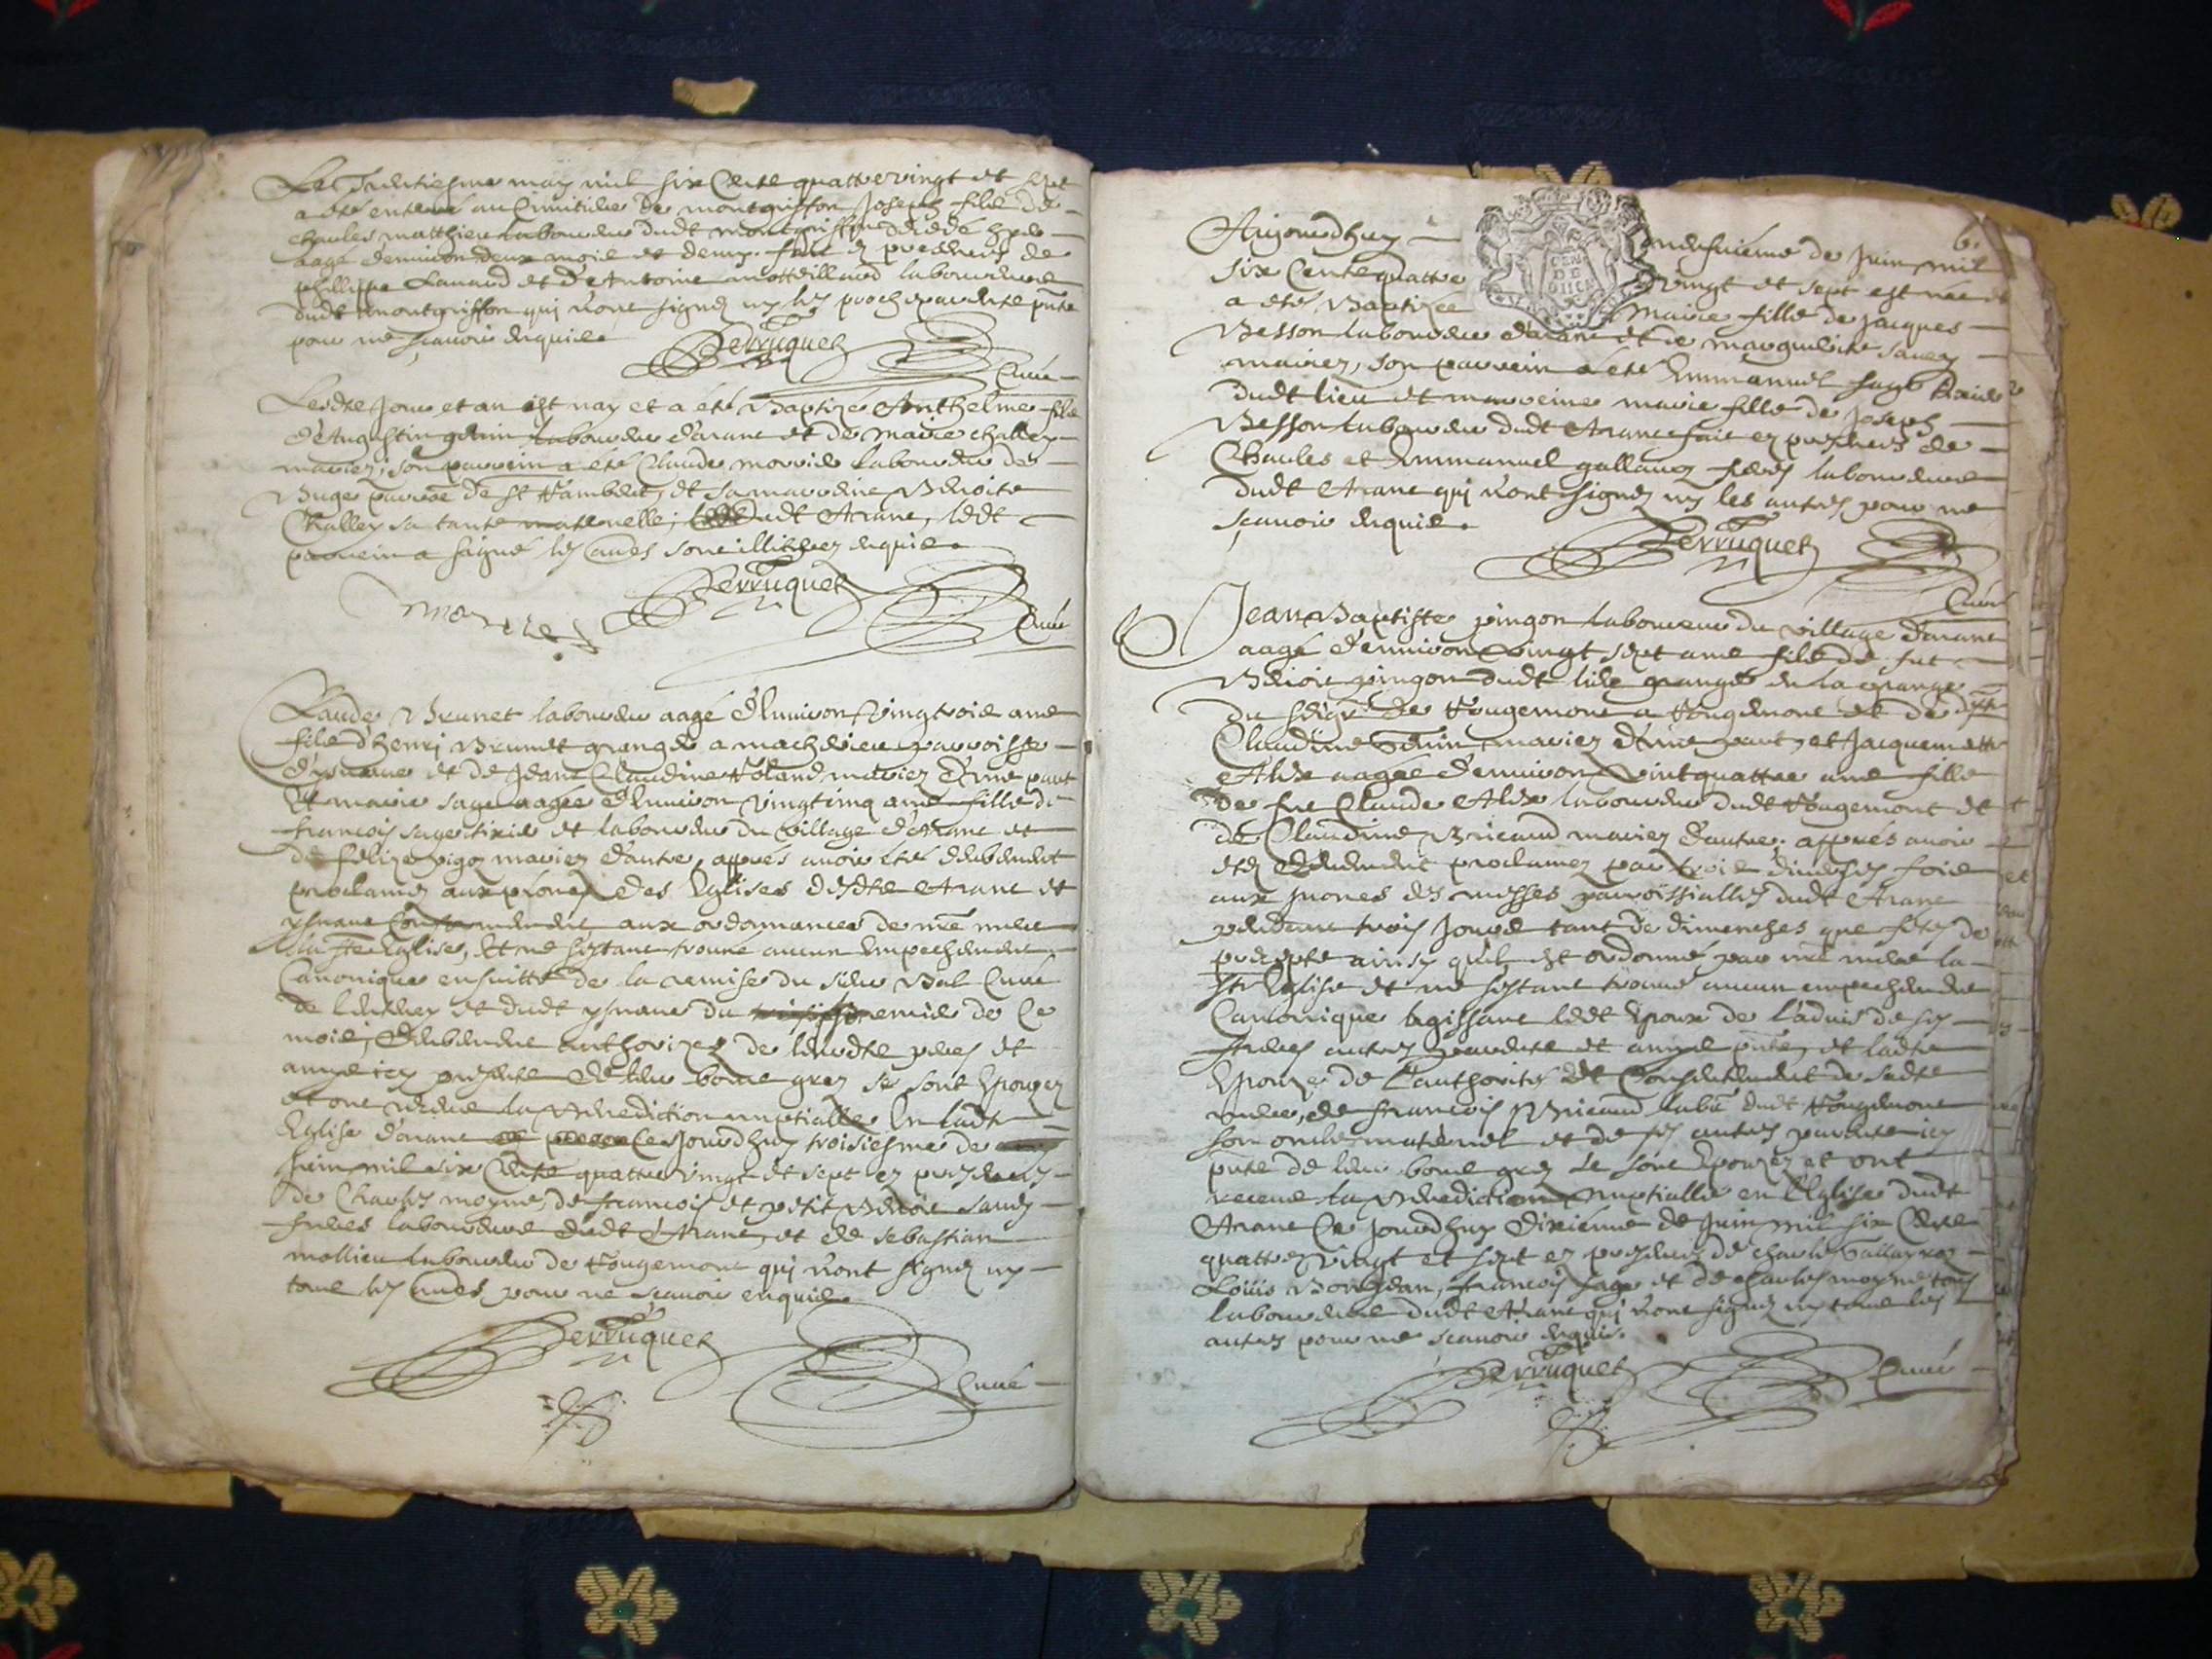 may mil six quattre vingt et sept
a été enterré au Cimitiere de montgriffon Joseph fils de
Charles matthieu laboureur dudt montgriffon décédé
aagé denuiron deux mois et demy. fait
phillippe et d'Antoine laboureurs
dudt montgriffon qui n'ont signez ny les proches parents
pour ne sçauoir enquis.
Perruquet
Curé
Lesdts Jour et an est nay et a été Baptizé Anthelme fils
d'Augustin laboureur d'arane et de Marie Challey
mariez; son parrein a été Claude morriel laboureur de
Buge parroe de St Rambert, et sa marreine Benoite
Challey sa tante maternelle; dudt Arane, ledt
parrein a signé les enquis.
Perruquet
Curé
Claude Brunet laboureur aagé d'enuiron vingtrois ans
fils d'henri Brunet granger a parroisse
et de Jeane Claudine Roland mariez d'une part
Et marie sage aagée d'enuiron vingtcinq ans fille de
francois sage et laboureur du village d'Arane et
de mariez d'autre, apprés auoir été deubement
proclamez aux prônes des Eglises desdts Arane et
aux ordonnances de nre mere
la ste Eglise, Et ne s'estant trouué aucun Empechement
Canonique ensuitte de la remise du sieur Curé
de et dudt du de Ce
mois, deubement authorizez de leursdts peres et
amys icy presents de leur bonne grez se sont Epouzez
et ont receu la Benediction nuptialle En ladte
Eglise d'arane Cejourdhuy troisiesme de
Juin mil six Cents quattre vingt et sept ez presences
de Charles moyne, de francois et petit Benoit
freres laboureurs dudt Arane, et de Sebastian
mollieu laboureur de Rougemont qui n'ont signez ny
tous les pour ne sçauoir enquis.
Perruquet
Curé
6.
Aujourdhuy de Juin mil
six Cents quattre vingt et sept est née et
a été Baptizée Marie fille de Jacques
Besson laboureur d'arane et de marguerite
mariez, son parrein a été Emmanuel sage
dudt lieu et marreine marie fille de Joseph
Besson laboureur dudt Arane fait ez presences de
Charles et Emmanuel freres laboureurs
dudt Arane qui n'ont signez ny les autres pour ne
sçauoir enquis.
Perruquet
Curé
Jean Baptiste pingon laboureur du village d'arane
aagé d'enuiron vingt sept ans fils de fut
Benoit pingon dudt lieu granger en la grange
du seigr de Rougemont a Rougemont et de
Claudine mariez d'une part, et Jacquemette
aagée d'enuiron vintquattre ans fille
de fut Claude laboureur dudt Rougemont et
de Claudine Bricaud mariez d'autre: apprés auoir
étez deubement proclamez par trois diuerses fois
aux prones des messes parroissialles dudt Arane
pendant trois Jours tant de dimenches que festes de
precepte ainsy qu'il est ordonné par nre mere la
ste Eglise et ne s'estant trouué aucun empechement
Canonique agissant ledt Epoux de l'aduis de ses
freres autres parents et amys pnts, et ladte
Epouze de l'authorité et Consentement de sadte
mere, de francois Bricaud labr dudt Rougemont
son oncle maternel et de ses autres parents icy
pnts de leur bonne grez se sont Epouzez et ont
receu la Benediction nuptialle en l'Eglise dudt
Arane Ce Jourdhuy dixiéme de Juin mil six Cents
quattre vingt et sept ez presences de Charles
Loüis francois sage et de Charles moyne tous
laboureurs dudt Arane qui n'ont signez ny tous les
autres pour ne sçauoir enquis.
Perruquet
Curé